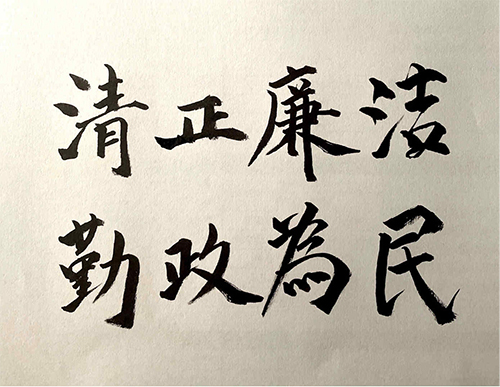 清正廉洁
勤政為民